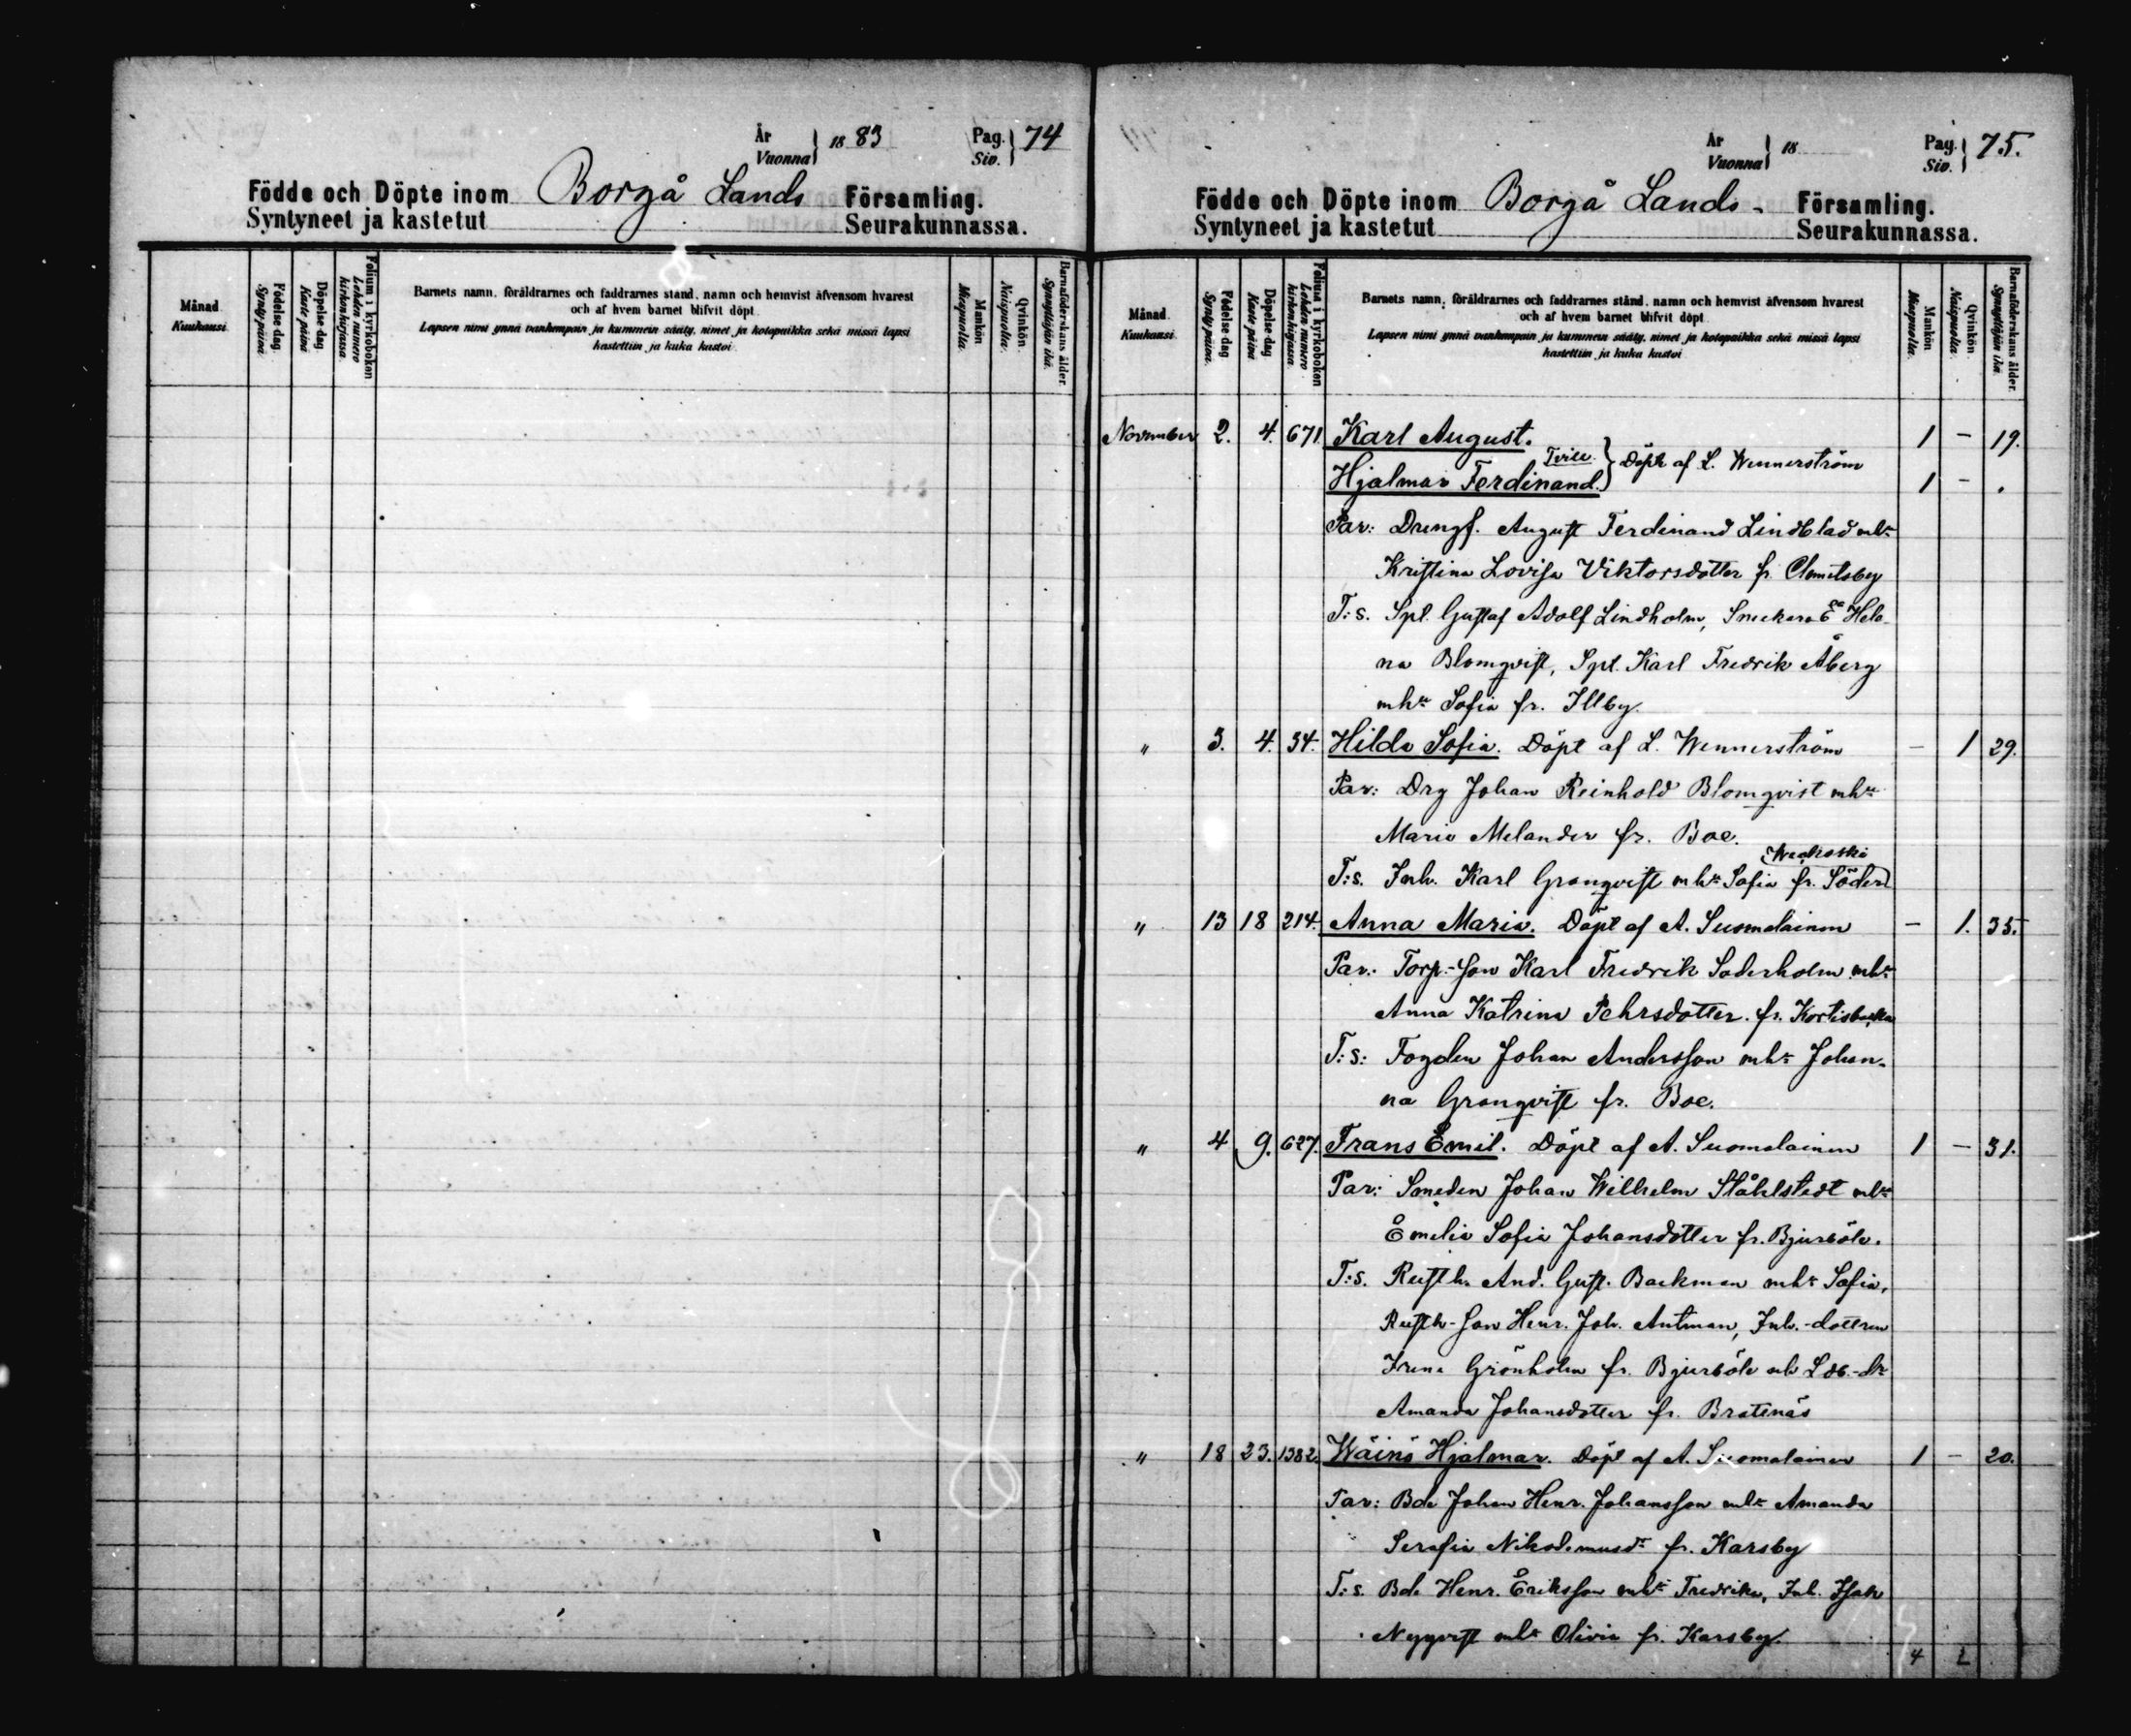 År
Vuonna } 1883
Pag.
Siv. } 74
Födde och Döpte inom Borgå Lands Församling.
Syntyneet ja kastetut Seurakunnassa.
Månad
Kuukausi.
Födelse-dag
Synty-päivä.
Döpelse-dag
Kaste-päivä
Folium i kyrkoboken
Lehden numero
kirkonkirjassa.
Barnets namn, föräldrarnes och faddrarnes stånd, namn och hemvist äfvensom hvarest
och af hvem barnet blifvit döpt.
Lapsen nimi ynnä vanhempain ja kummein sääty, nimet ja kotopaikka sekä missä lapsi
kastettiin ja kuka kastoi.
Mankön
Miespuolta.
Qvinkön.
Naispuolta.
Barnaföderskans ålder.
Synnyttäjän ikä.
År
Vuonna } 18
Pag.
Siv. } 75.
Födde och Döpte inom Borgå Lands- Församling.
Syntyneet ja kastetut Seurakunnassa.
Månad.
Kuukausi.
Födelse-dag
Synty-päivä.
Döpelse-dag
Kaste-päivä.
Folium i kyrkoboken
Lehden numero
kirkonkirjassa.
Barnets namn, föräldrarnes och faddrarnes stånd, namn och hemvist äfvensom hvarest
och af hvem barnet blifvit döpt.
Lapsen nimi ynnä vanhempain ja kummein sääty, nimet ja kotopaikka sekä missä lapsi
kastettiin ja kuka kastoi
Mankön
Miespuolta.
Qvinkön
Naispuolta.
Barnaföderskans ålder.
Synnyttäjän ikä.
November 2. 4. 671. Karl August. 1 - 19.
Tvill. } Döpte af L. Wennerström
Hjalmar Ferdinand. 1 - .
Par: Drengf. August Ferdinand Lindblad mhu
Kristina Lovisa Viktorsdotter fr.
T:s. Spt. Gustaf Adolf Lindholm, Hele-
na Blomqvist, Spt. Karl Fredrik Åberg
mhu Sofia fr. Illby.
" 3. 4. 34. Hilda Sofia. Döpt af L. Wennerström - 1 29.
Par: Drg Johan Reinhold Blomqvist mhu
Maria Melander fr. Boe.
Weckoski
T:s. Inh. Karl Granqvist mhu Sofia fr. Söder
" 13 18 214. Anna Maria. Döpt af A. Suomalainen - 1. 35.
Par: Torp.-son Karl Fredrik Söderholm mhu
Anna Katrina Pehrsdotter. fr. Kortisbacka
T:s: Fogden Johan Andersson mhu Johan-
na Granqvist fr. Boe.
" 4 9. 627. Frans Emil. Döpt af A. Suomalainen 1 - 31.
Par: Smeden Johan Wilhelm Ståhlstedt mhu
Emelia Sofia Johansdotter fr. Bjurböle.
T:s. Rusth. And. Gust. Backman mhu Sofia,
Rusth-son Henr. Joh. Antman, Inh.-dottren
Irena Grönholm fr. Bjurböle och Ldb.-dr
Amanda Johansdotter fr. Bratnäs
" 18 23. 1382. Wäinö Hjalmar. Döpt af A. Suomalainen 1 - 20.
Par: Bde Johan Henr. Johansson mhu Amanda
Serafia Nikodemusdr fr. Karsby
T:s. Bde Henr. Eriksson mhu Fredrika, Inh. Isak
Nyqvist mhu Olivia fr. Karsby.
4 2